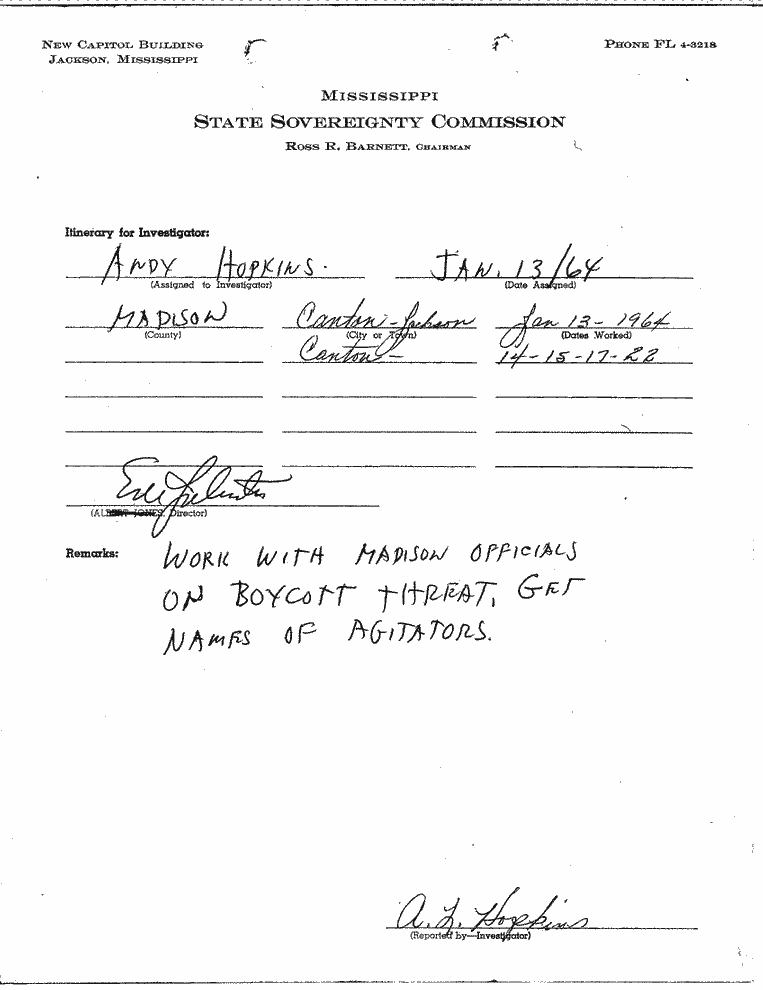 NEW CAPITOL BUILDING
JACKSON, MISSISSIPPI
PHONE FL 4-3218
MISSISSIPPI
STATE SOVEREIGNTY COMMISSION
ROSS R. BARNETT, CHAIRMAN
Itinerary for Investigator:
ANDY HOPKINS. JAN. 13/64
(Assigned to Investigator) (Date Assigned)
MADISON Canton-Jackson Jan 13-1964
(County) (City or Town) (Dates Worked)
Canton- 14-15-17-22
(ALBERT JONES, Director)
Remarks: WORK WITH MADISON OFFICIALS
ON BOYCOTT THREAT, GET
NAMES OF AGITATORS.
A. L. Hopkins
(Reported by—Investigator)